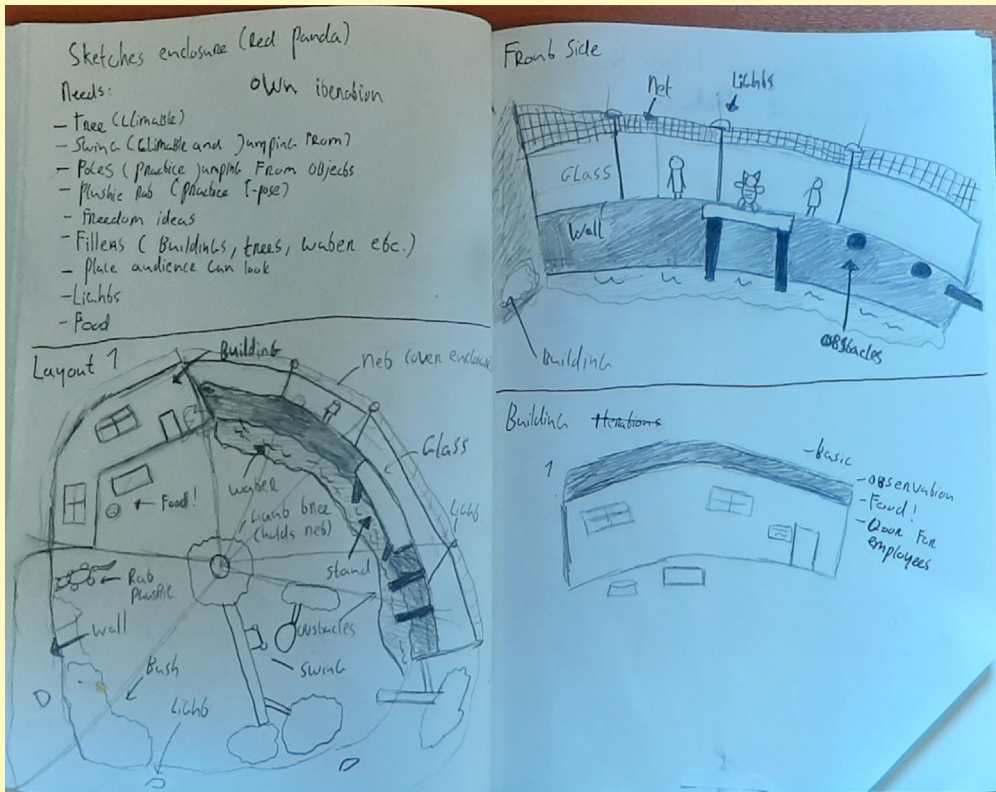 Sketches enclosure (Red panda)
Needs:
own iteration
- tree (climable)
- Swing (climable and jumping from)
- Poles (practice jumping from objects
- plushie Rat (practice T-pose)
- Freedom ideas
- Fillers (Buildings, trees, water etc.)
- place audience can look
- Lights
- Food
Layout 1
Building
net (over enclosure
Glass
water
Food!
climb tree
(holds net)
Light
stand
Rat
plushie
obstacles
wall
Swing
Bush
Light
Front Side
Net
Lights
Glass
Wall
obstacles
Building
Building Iterations
1
- Basic
- observation
- Food!
- Door for
employees